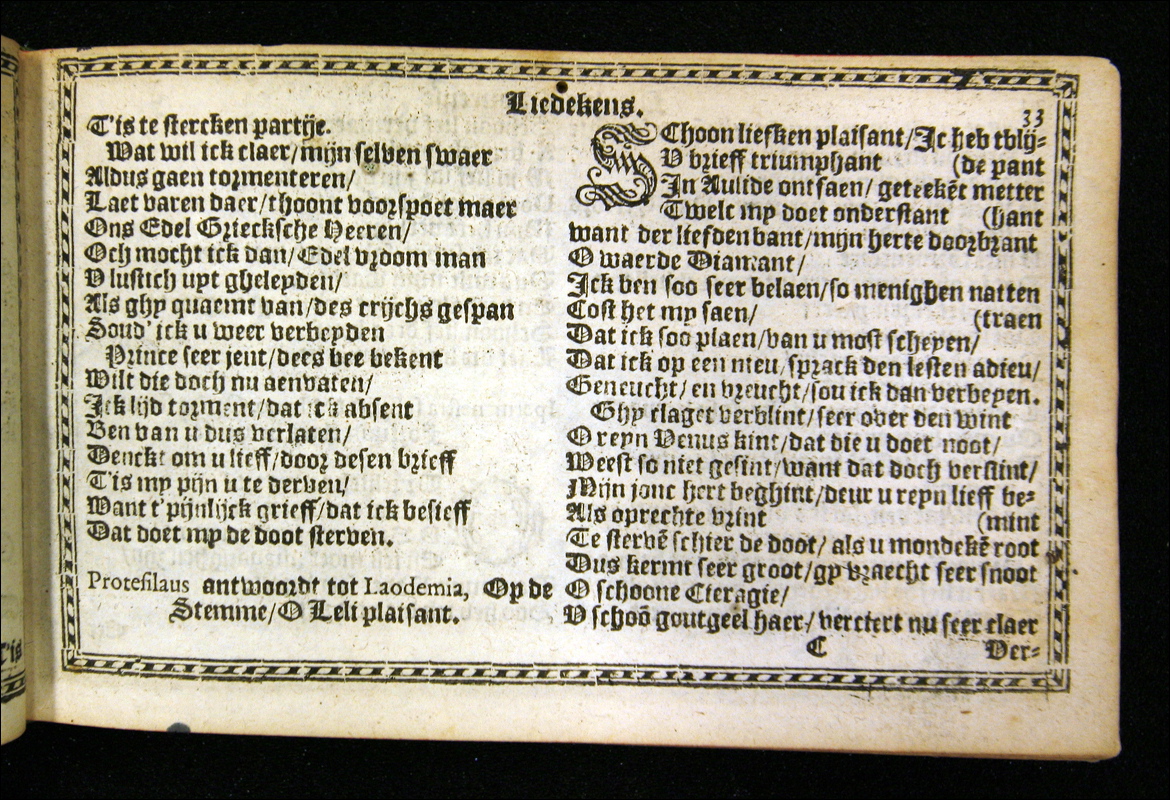 Liedekens.
33
T'is te stercken partije.
Wat wil ick claer/mijn selven swaer
Aldus gaen tormenteren/
Laet varen daer/thoont voorspoet maer
Ons Edel Griecksche Heeren/
Och mocht ick dan/Edel vroom man
V lustich upt gheleyden/
Als ghy quaemt van/des crijchs gespan
Soud' ick u weer verbeyden
Prince seer jent/dees bee bekent
Wilt die doch nu aenvaten/
Ick lijd torment/dat ick absent
Ben van u dus verlaten/
Denckt om u lieff/door desen brieff
T'is my pijn u te derven/
Want t'pijnlijck grieff/dat ick besieff
Dat doet my de doot sterven.
Protesilaus antwoordt tot Laodemia, Op de
Stemme/O Leli plaisant.
SChoon liefken plaisant/Ic heb tblij-
V brieff triumphant (de pant
In Aulide ontfaen/ geteekēt metter
Twelt my doet onderstant (hant
want der liefden bant/mijn herte doorbrant
O waerde Diamant/
Ick ben soo seer belaen/so menighen natten
Cost het my saen/ (traen
Dat ick soo plaen/van u most scheyen/
Dat ick op een nieu/sprack den lesten adieu/
Geneucht/ en vreucht/sou ick dan verbeyen.
Ghy claget verblint/seer over den wint
O reyn Venus kint/dat die u doet noot/
Weest so niet gesint/want dat doch verslint/
Mijn jonc hert beghint/deur u reyn lieff be-
Als oprechte vrint (mint
Te stervē schier de doot/ als u mondekē root
Dus kermt seer groot/gy vraecht seer snoot
O schoone Cieragie/
V schoō goutgeel haer/verciert nu seer claer
C Ver-
T'is